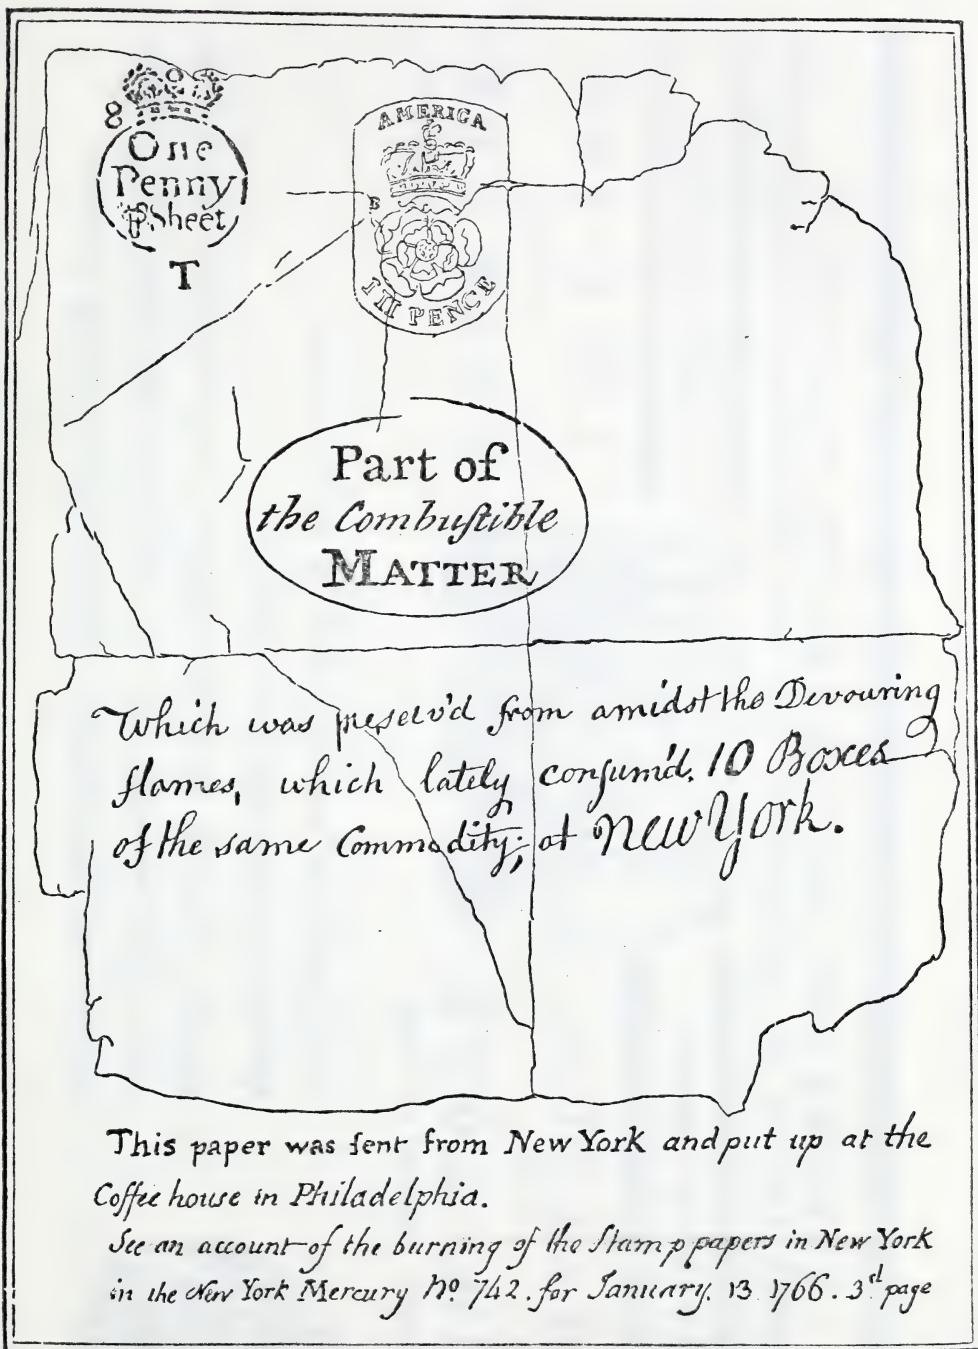 8
One
Penny
℔Sheet
T
AMERICA
B
III PENCE
Part of
the Combuſtible
MATTER
Which was preserv'd from amidst the Devouring
flames, which lately consum'd. 10 Boxes
of the same Commodity; at New York.
This paper was ſent from New York and put up at the
Coffee house in Philadelphia.
See an account of the burning of the Stamp papers in New York
in the New York Mercury No. 742. for January. 13 1766. 3rd page